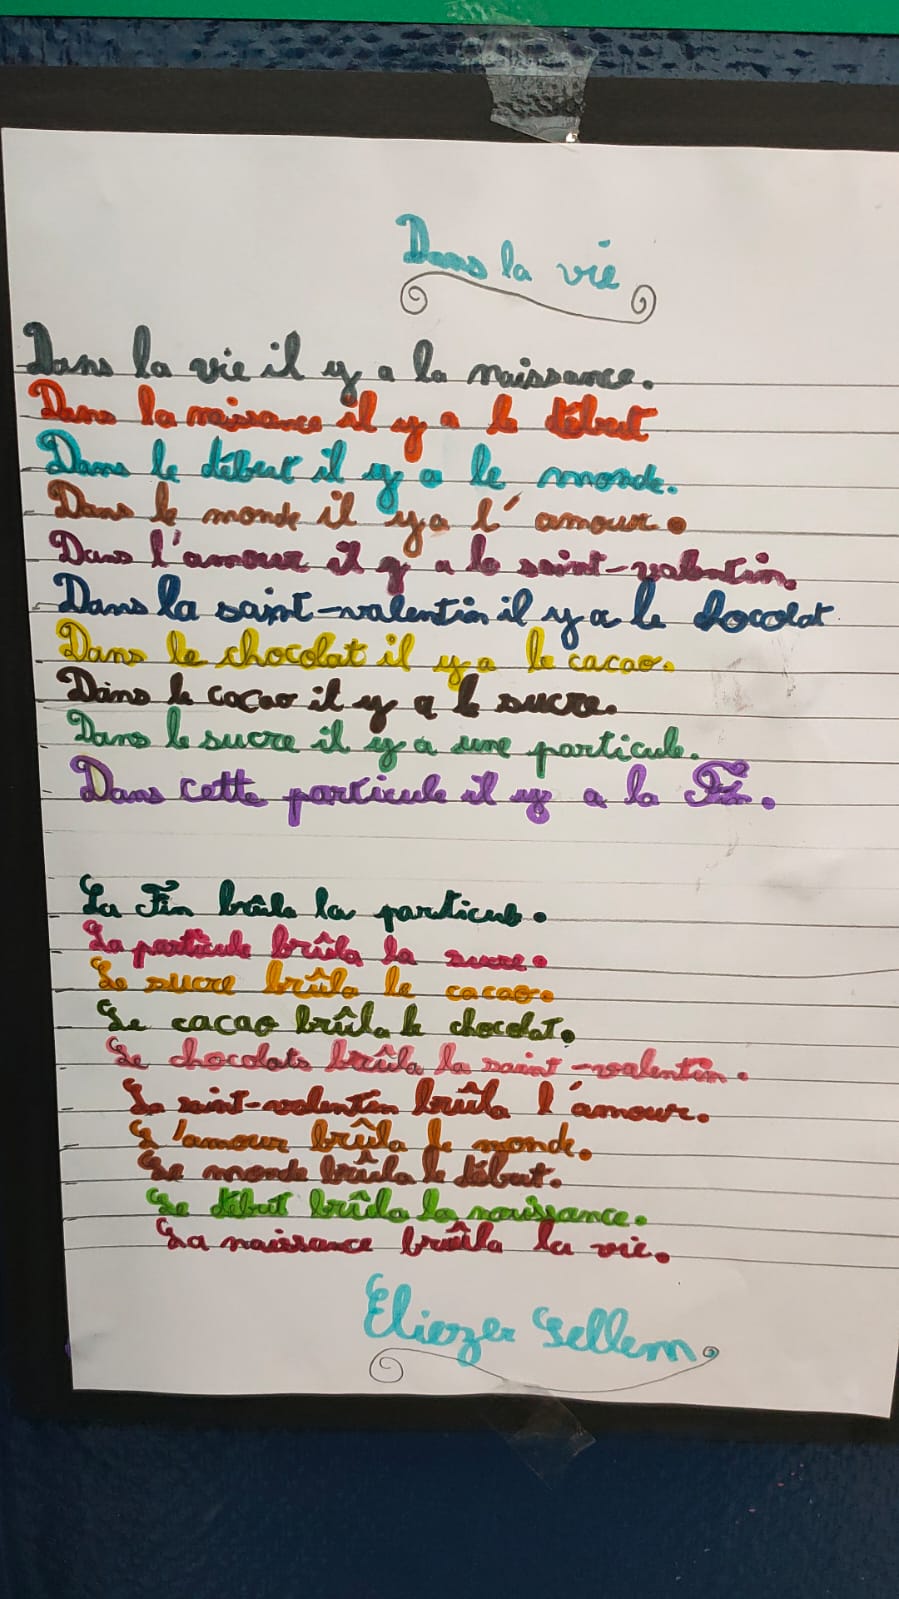 Dans la vie
Dans la vie il y a la naissance.
Dans la naissance il y a le début
Dans le début il y a le monde.
Dans le monde il y a l'amour.
Dans l'amour il y a la saint-valentin.
Dans la saint-valentin il y a le chocolat
Dans le chocolat il y a le cacao.
Dans le cacao il y a le sucre.
Dans le sucre il y a une particule.
Dans cette particule il y a la Fin.
La Fin brûla la particule.
La particule brûla la sucre.
Le sucre brûla le cacao.
Le cacao brûla le chocolat.
Le chocolats brûla la saint-valentin.
La saint-valentin brûla l'amour.
L'amour brûla le monde.
Le monde brûla le début.
Le début brûla la naissance.
La naissance brûla la vie.
Eliezer Sellem